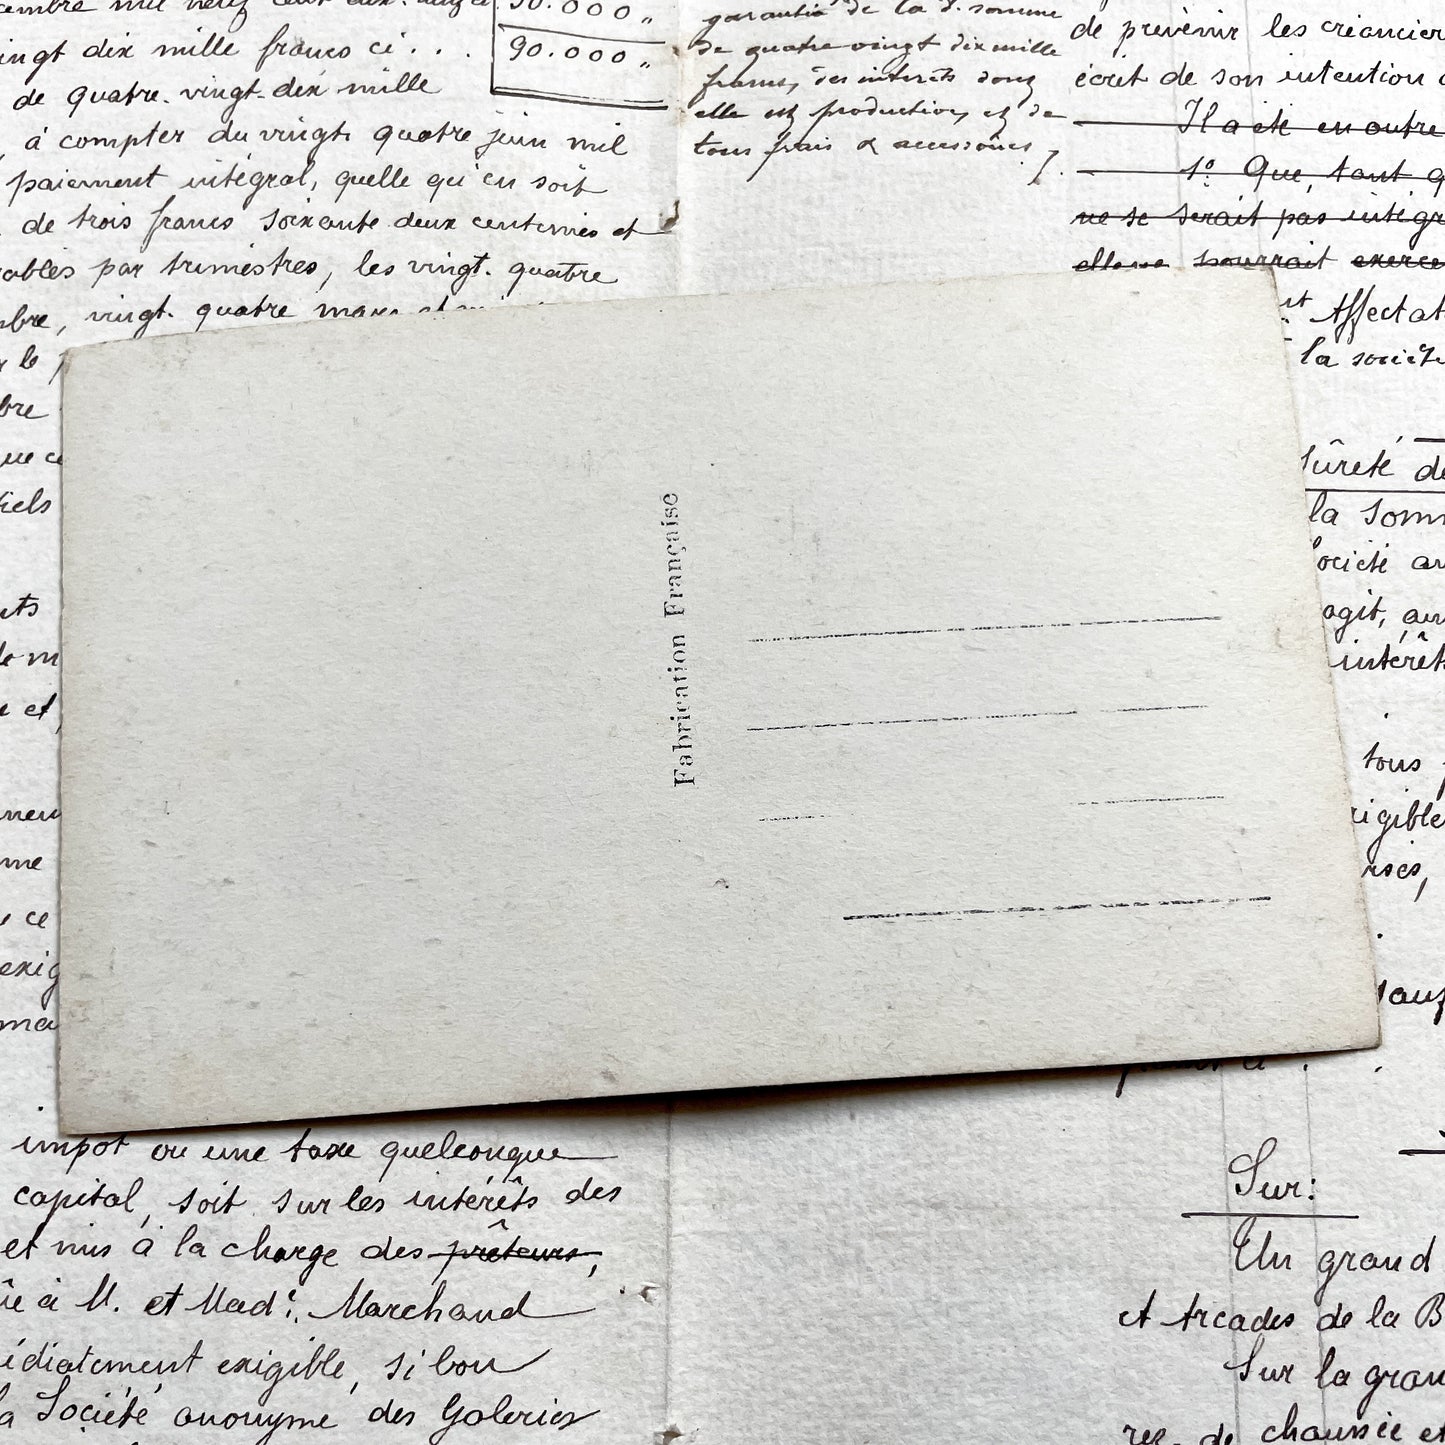 90.000 "
vingt dix mille francs ci . . .
90.000 "
de quatre-vingt-dix mille
à compter du vingt quatre juin mil
paiement intégral, quelle qu'en soit
de trois francs soixante deux centimes et
payables par trimestres, les vingt-quatre
vingt-quatre mars et
garantie de la d. somme
de quatre vingt dix mille
francs, des intérêts dont
elle est productive, et de
tous frais & accessoires
de prévenir les créanciers
écrit de son intention
Il a été en outre
1° Que, tant
ne se serait pas
elle ne pourrait exercer
Affectat
la société
sûreté de
la som
société an
agit, au
intérêts
tous
exigible
sauf
Fabrication Française
impôt ou une taxe quelconque
capital, soit sur les intérêts des
et mis à la charge des prêteurs,
à M. et Mad^e. Marchand
immédiatement exigible, si bon
la Société anonyme des Galeries
Sur:
Un grand
et Arcades de la B
Sur la gran
rez-de-chaussée et